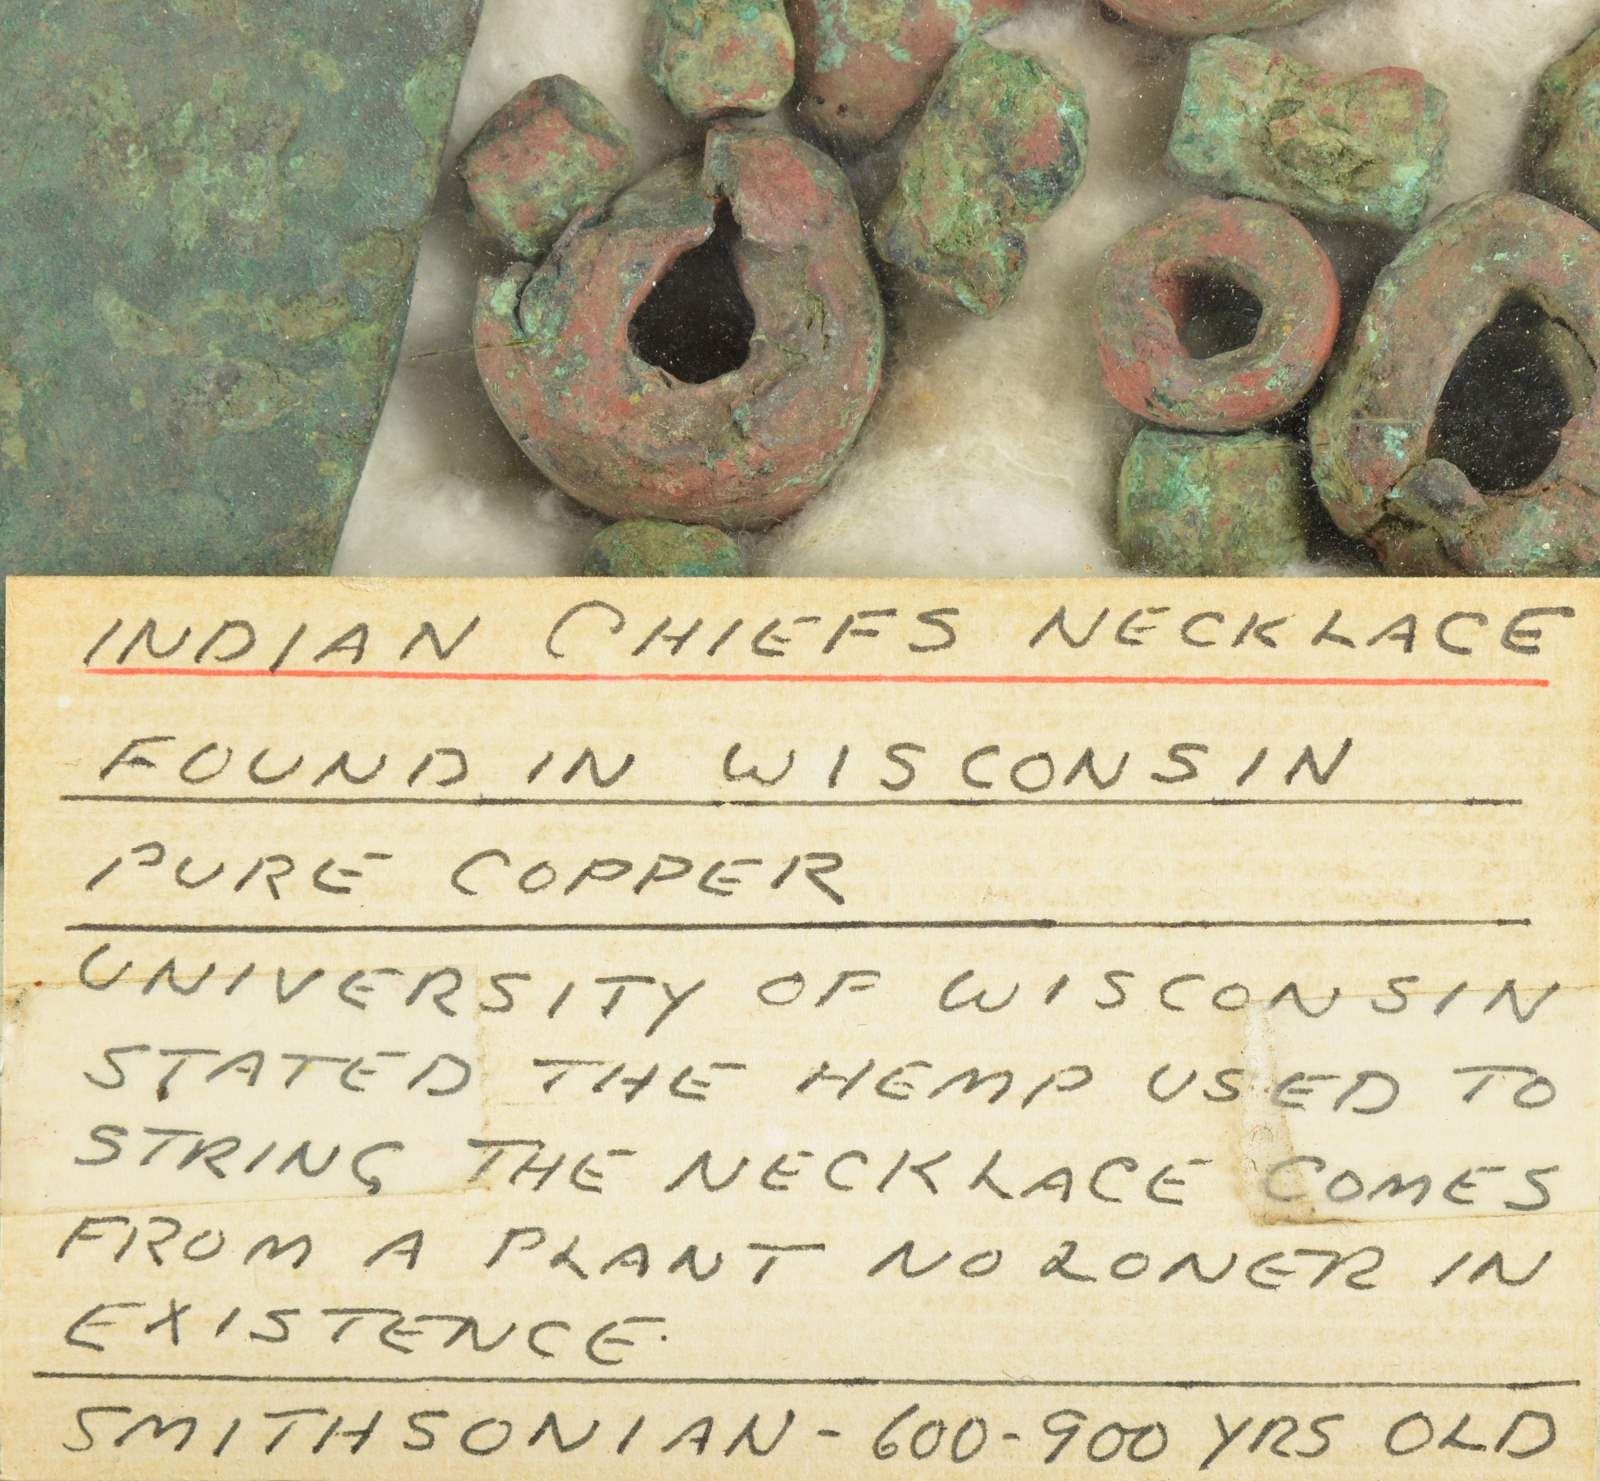 INDIAN CHIEFS NECKLACE
FOUND IN WISCONSIN
PURE COPPER
UNIVERSITY OF WISCONSIN
STATED THE HEMP USED TO
STRING THE NECKLACE COMES
FROM A PLANT NO LONER IN
EXISTENCE.
SMITHSONIAN - 600-900 YRS OLD